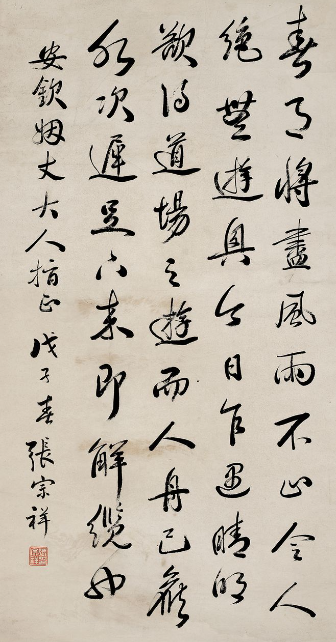 春事將盡風雨不止令人
絕無遊興今日乍遇晴明
欲得道場之遊而人舟已
水次遲足下來即解纜也
安欽姻丈大人指正 戊子春 張宗祥